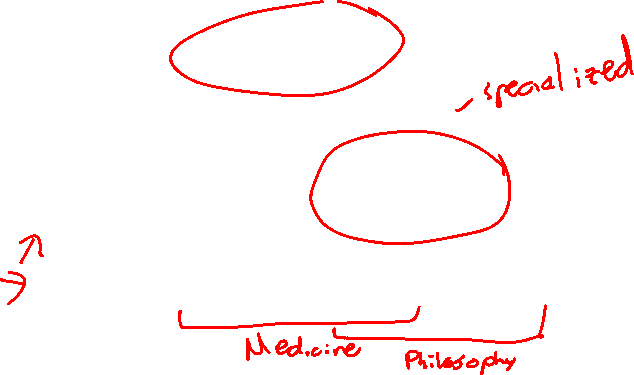 specialized
Medicine
Philosophy